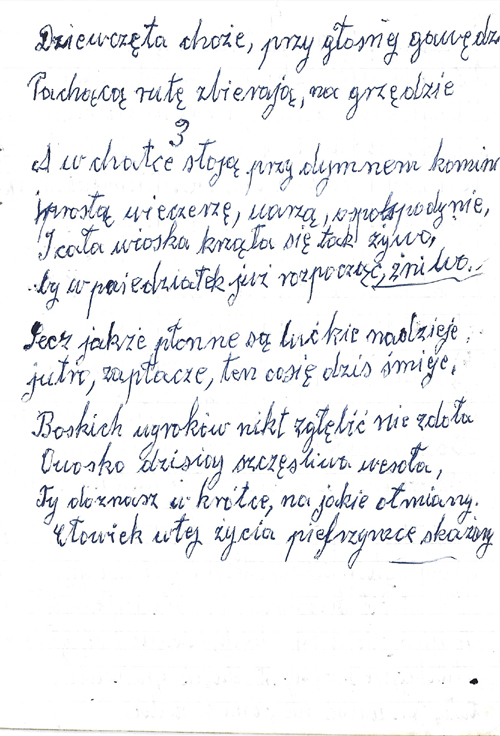 Dziewczęta choże, przy głośnej gawędz
Pachącą rutę zbierają, na grzędzie
3
A w chatce stoją przy dymnem komin
i prostą wieczerzę, warzą, gospodynie,
I cała wioska krząta się tak żywo,
by w poiedziałek już rozpocząć, żniwo.
Lecz jakże płonne są luckie nadzieje,
jutro, zapłacze, ten cosię dziś śmieje,
Boskich wyroków nikt zgłębić nie zdoła
O wosko dzisioy szczęsliwa wesoła,
Ty doznasz w krótce, na jakie otmiany.
Człowiek w tej życia pielrzymce skazany